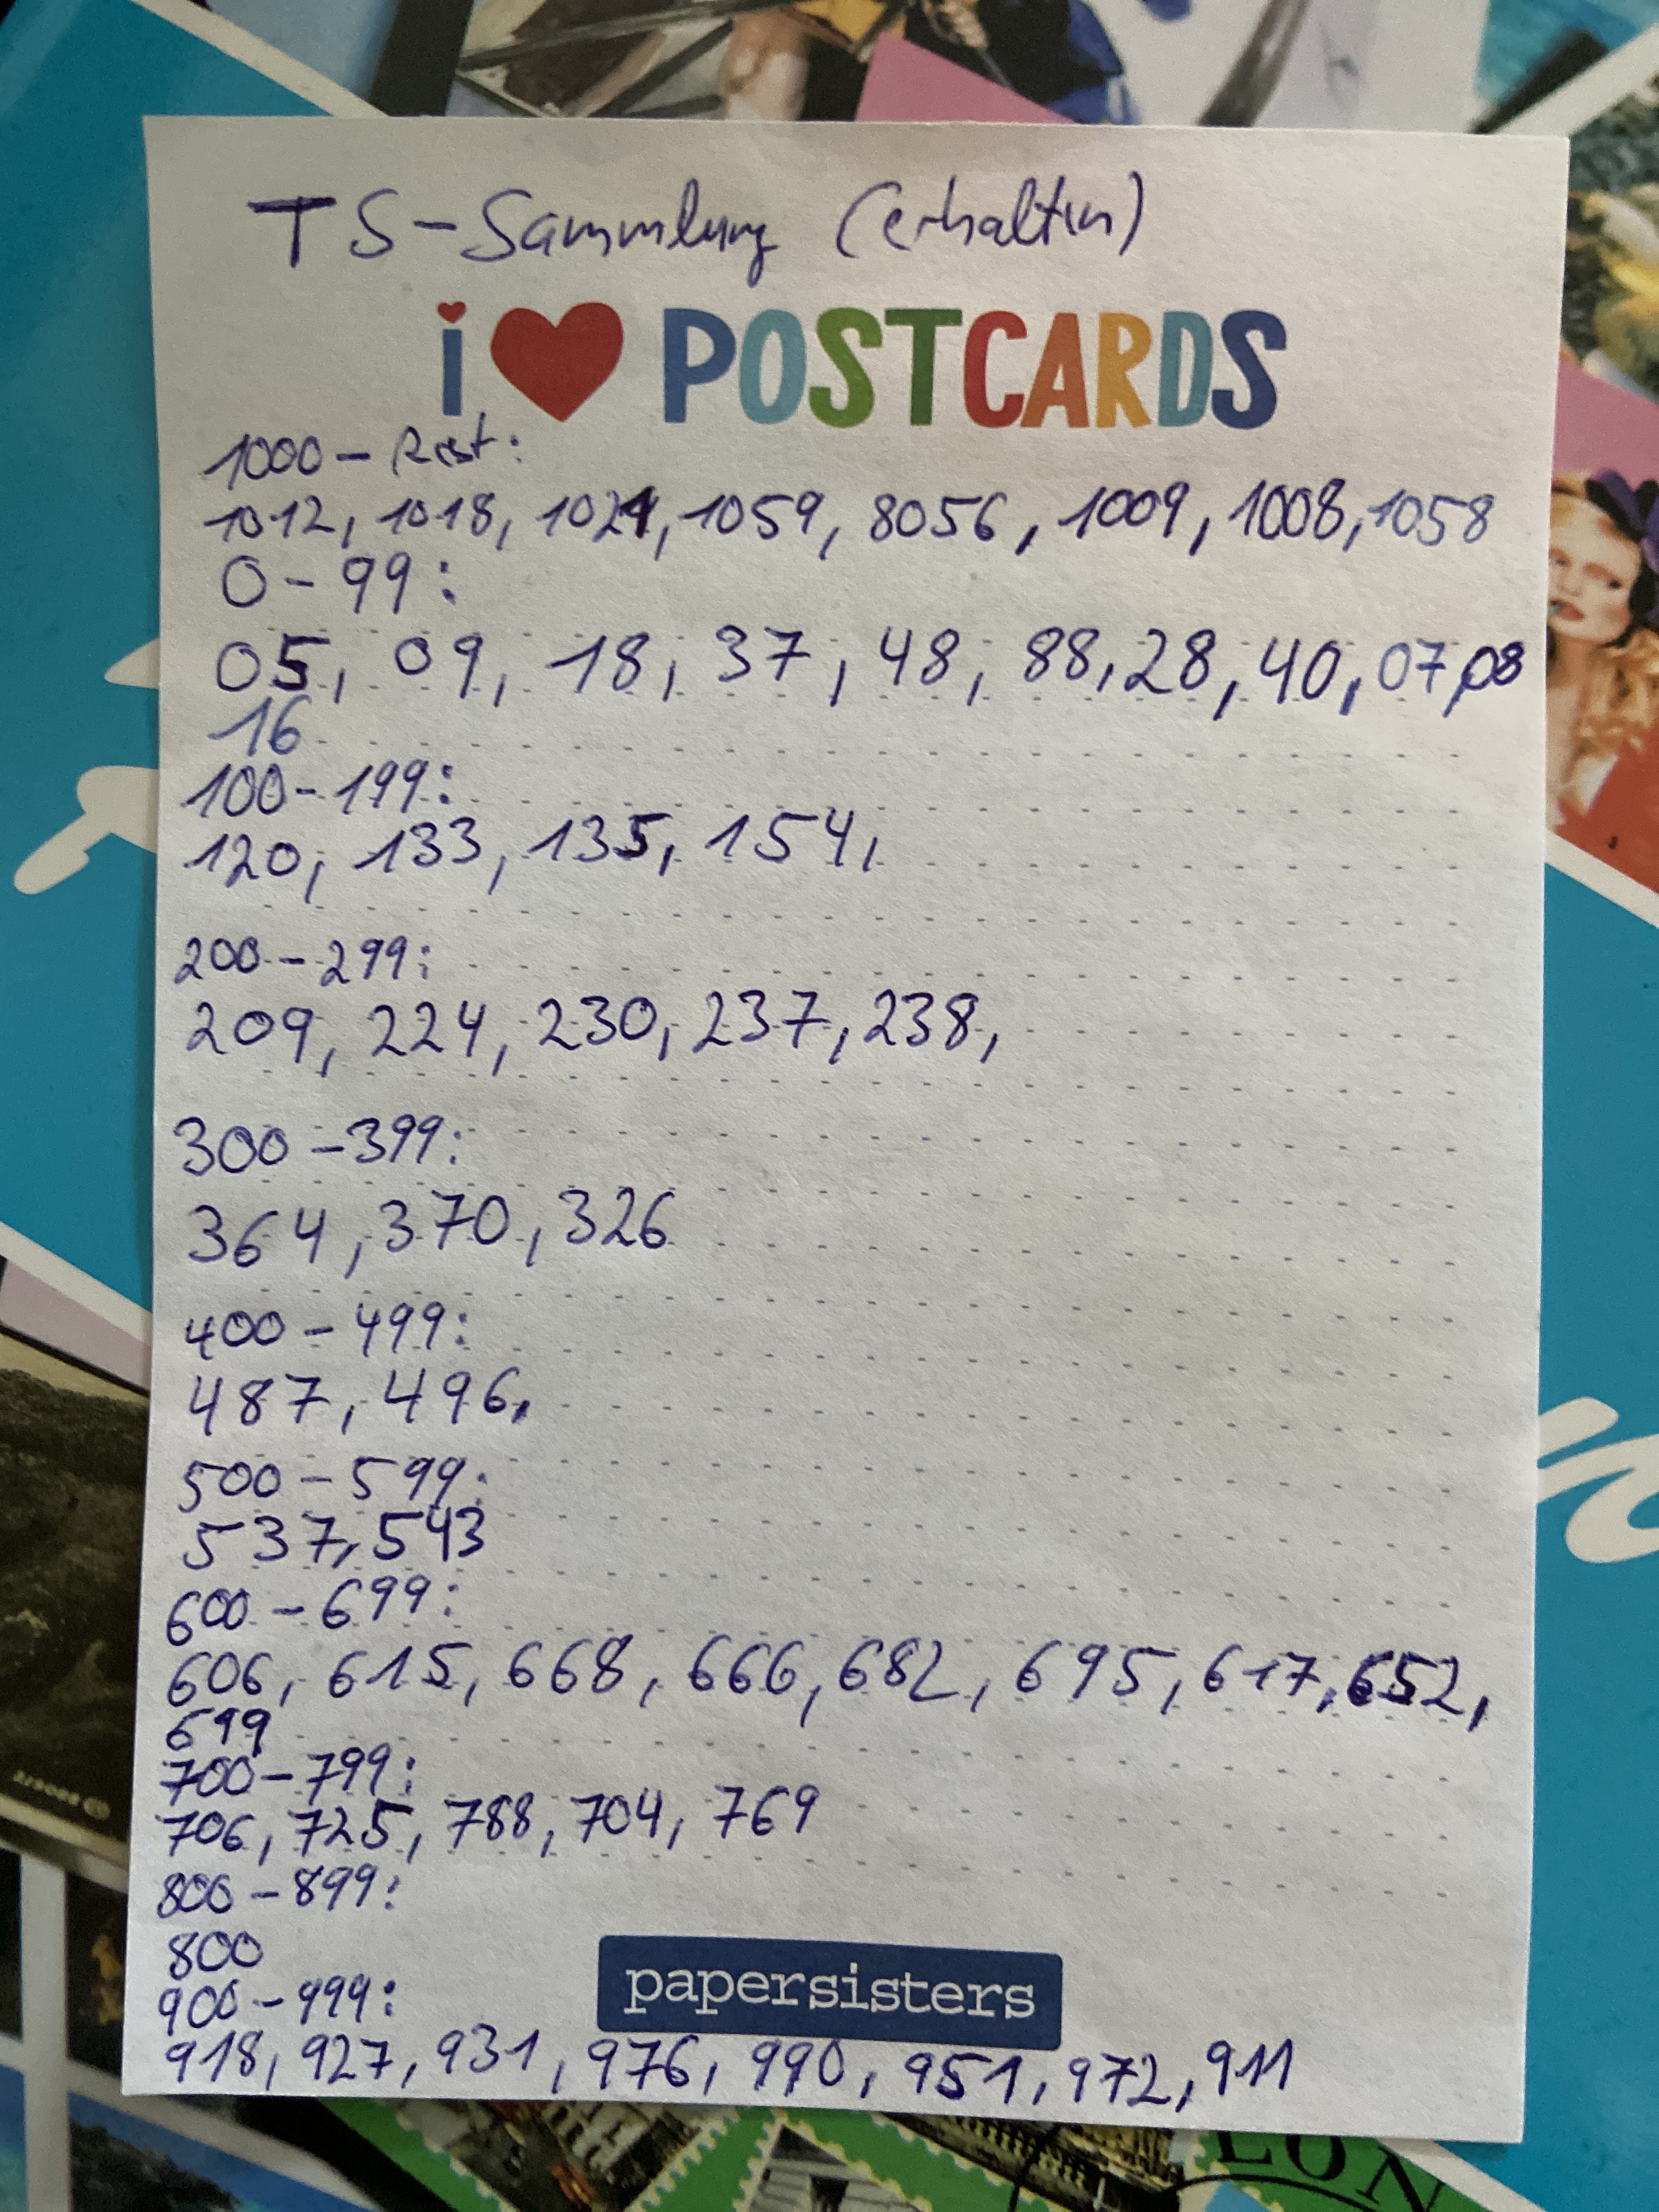 TS-Sammlung (erhalten)
i ❤ POSTCARDS
1000 - Rest:
1012, 1018, 1021, 1059, 8056, 1009, 1008, 1058
0 - 99:
05, 09, 18, 37, 48, 88, 28, 40, 07, 08
16
100 - 199:
120, 133, 135, 154,
200 - 299:
209, 224, 230, 237, 238,
300 - 399:
364, 370, 326
400 - 499:
487, 496,
500 - 599:
537, 543
600 - 699:
606, 615, 668, 666, 682, 695, 617, 652,
699
700 - 799:
706, 725, 788, 704, 769
800 - 899:
800
900 - 999:
papersisters
918, 927, 931, 976, 990, 951, 972, 911
LON